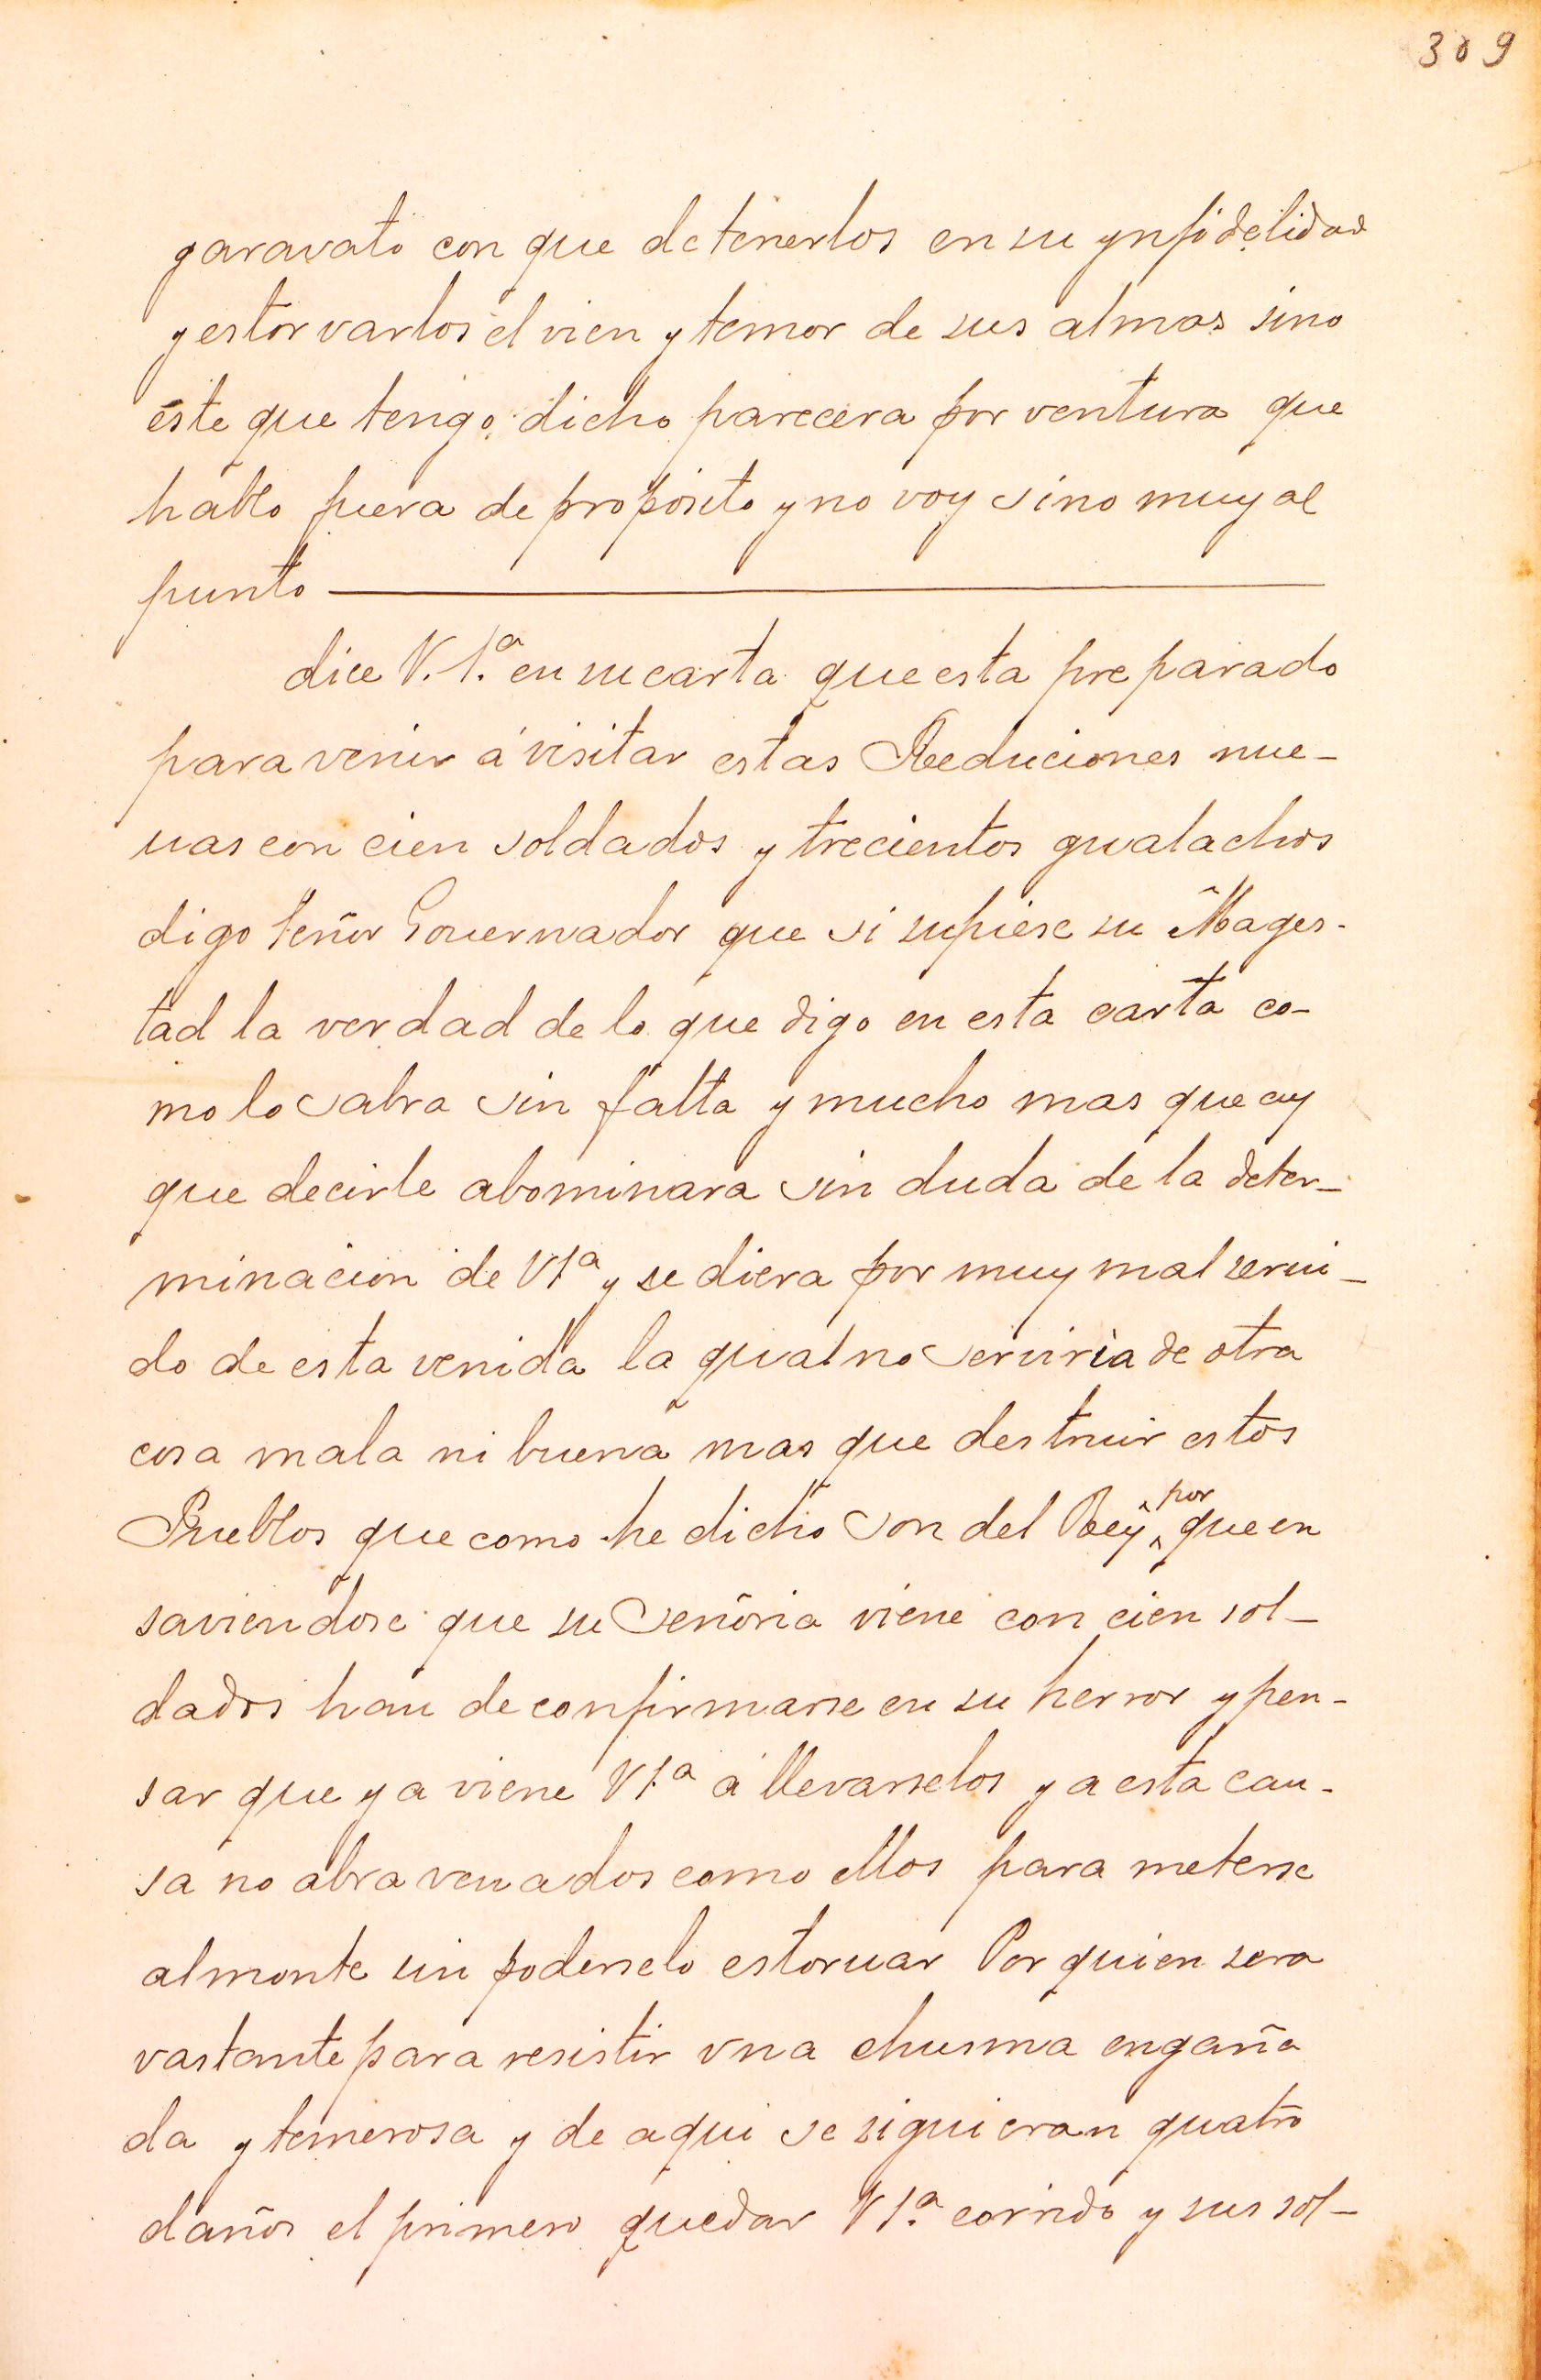 309
garavato con que detenerlos en su ynfidelidad
y estorvarlos el vien y temor de sus almas sino
éste que tengo dicho parecera por ventura que
hablo fuera de proposito y no voy sino muy al
punto
dice V. S.ª en su carta que esta preparado
para venir á visitar estas Reduciones nue-
uas con cien soldados y trecientos gualachos
digo Señor Gouernador que si supiese su Mages-
tad la verdad de lo que digo en esta carta co-
mo lo sabra sin falta y mucho mas que ay
que decirle abominara sin duda de la deter-
minacion de VSª y se diera por muy mal serui-
do de esta venida la qual no seruiria de otra
cosa mala ni buena mas que destruir estos
Pueblos que como he dicho son del Rey por que en
saviendose que su Señoria viene con cien sol-
dados han de confirmarse en su herror y pen-
sar que ya viene VS.ª á llevarselos y a esta cau-
sa no abra venados como ellos para meterse
al monte sin poderselo estoruar Por quien sera
vastante para resistir vna chusma engaña
da y temerosa y de aqui se siguieran quatro
daños el primero quedar VS.ª corrido y sus sol-